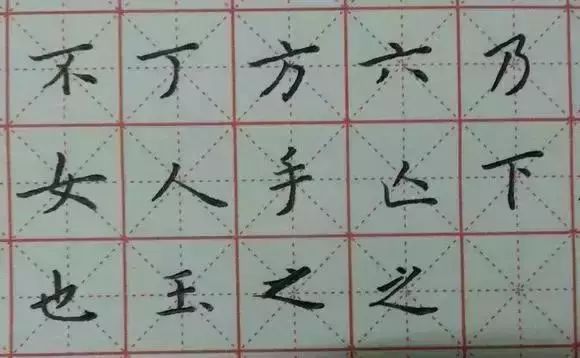 不丁方六乃
女人手亾下
也玉之之